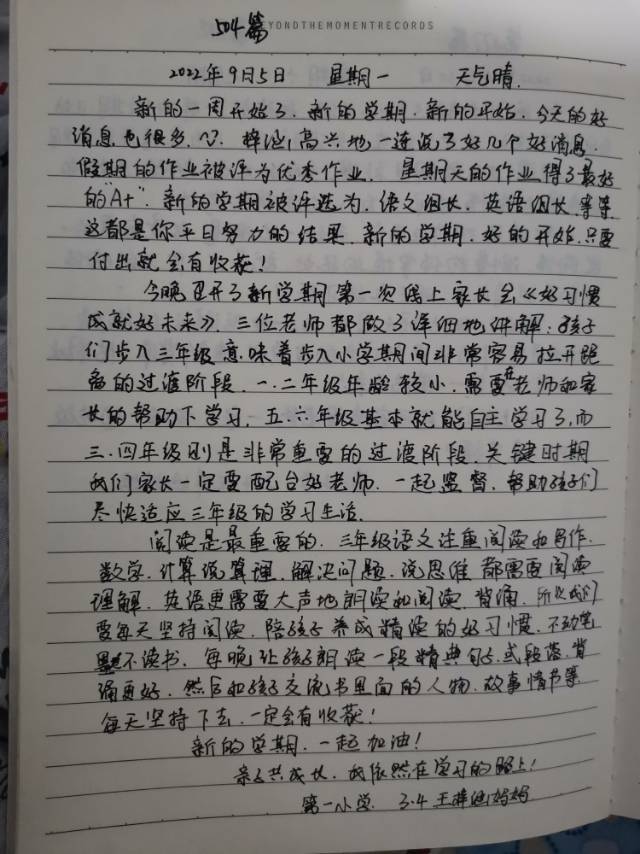 504篇
YONDTHEMOMENTRECORDS
2022年9月5日 星期一 天气晴
新的一周开始了,新的学期,新的开始,今天的好
消息也很多,高兴地一连说了好几个好消息,
假期的作业被评为优秀作业,星期天的作业得了最好
的"A+",新的学期被评选为,语文组长,英语组长,等等
这都是你平日努力的结果,新的学期,好的开始,只要
付出就会有收获!
今晚召开了新学期第一次线上家长会《好习惯
成就好未来》,三位老师都做了详细地讲解:孩子
们步入三年级,意味着步入小学期间非常容易拉开距
离的过渡阶段,一.二年级年龄较小,需要在老师和家
长的帮助下学习,五.六年级基本就能自主学习了,而
三.四年级则是非常重要的过渡阶段,关键时期
我们家长一定要配合好老师,一起监督,帮助孩子们
尽快适应三年级的学习生活.
阅读是最重要的,三年级语文注重阅读和写作,
数学,计算说算理,解决问题,说思维都需要阅读
理解,英语更需要大声地朗读和阅读,背诵,所以我们
要每天坚持阅读,陪孩子养成精读的好习惯,不动笔
墨不读书,每晚让孩子朗读一段精典句子,或段落,背
诵更好,然后和孩子交流书里面的人物,故事情节等
每天坚持下去,一定会有收获!
新的学期,一起加油!
亲子共成长,我依然在学习的路上!
第一小学 3.4 王梓妈妈